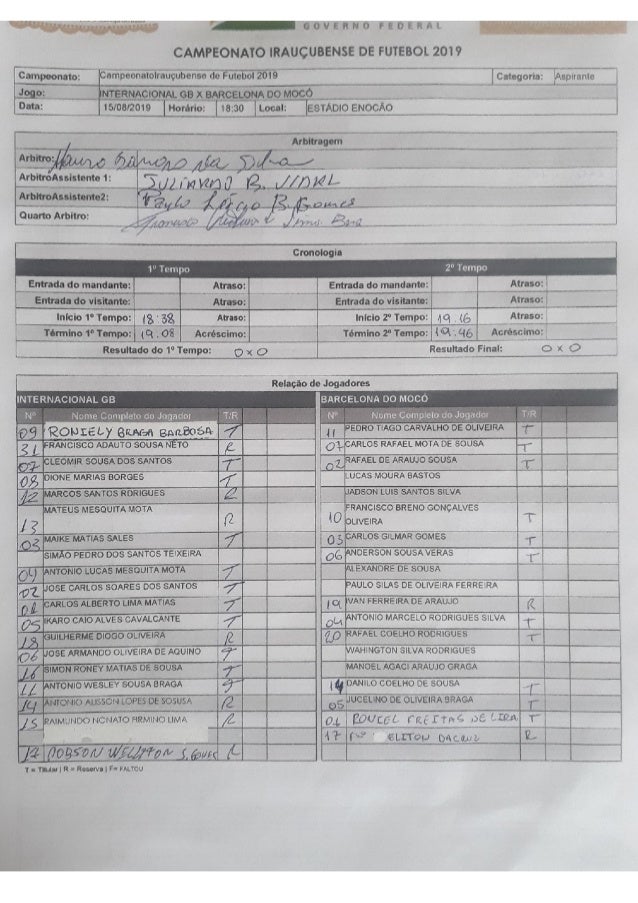 GOVERNO FEDERAL
CAMPEONATO IRAUÇUBENSE DE FUTEBOL 2019
Campeonato: CampeonatoIrauçubense de Futebol 2019 Categoria: Aspirante
Jogo: INTERNACIONAL GB X BARCELONA DO MOCÓ
Data: 15/08/2019 Horário: 18:30 Local: ESTÁDIO ENOCÃO
Arbitragem
Arbitro: da Silva
ArbitroAssistente 1: JULIARMO B.
ArbitroAssistente2: Paulo Lércio B. Gomes
Quarto Arbitro: Francisco
Cronologia
1º Tempo 2º Tempo
Entrada do mandante: Atraso: Entrada do mandante: Atraso:
Entrada do visitante: Atraso: Entrada do visitante: Atraso:
Início 1º Tempo: 18:38 Atraso: Início 2º Tempo: 19.16 Atraso:
Término 1º Tempo: 19.08 Acréscimo: Término 2º Tempo: 19.46 Acréscimo:
Resultado do 1º Tempo: 0x0 Resultado Final: 0x0
Relação de Jogadores
INTERNACIONAL GB BARCELONA DO MOCÓ
Nº Nome Completo do Jogador T/R Nº Nome Completo do Jogador T/R
09 RONIELY BRAGA BARBOSA T 11 PEDRO TIAGO CARVALHO DE OLIVEIRA T
31 FRANCISCO ADAUTO SOUSA NETO R 07 CARLOS RAFAEL MOTA DE SOUSA T
07 CLEOMIR SOUSA DOS SANTOS T 02 RAFAEL DE ARAUJO SOUSA T
08 DIONE MARIAS BORGES T LUCAS MOURA BASTOS
12 MARCOS SANTOS RDRIGUES R JADSON LUIS SANTOS SILVA
13 MATEUS MESQUITA MOTA R 10 FRANCISCO BRENO GONÇALVES
OLIVEIRA T
03 MAIKE MATIAS SALES T 03 CARLOS GILMAR GOMES T
SIMÃO PEDRO DOS SANTOS TEIXEIRA 06 ANDERSON SOUSA VERAS T
04 ANTONIO LUCAS MESQUITA MOTA T ALEXANDRE DE SOUSA
02 JOSE CARLOS SOARES DOS SANTOS T PAULO SILAS DE OLIVEIRA FERREIRA
01 CARLOS ALBERTO LIMA MATIAS T 19 IVAN FERREIRA DE ARAUJO R
05 IKARO CAIO ALVES CAVALCANTE T 04 ANTONIO MARCELO RODRIGUES SILVA T
18 GUILHERME DIOGO OLIVEIRA R 20 RAFAEL COELHO RODRIGUES T
06 JOSE ARMANDO OLIVEIRA DE AQUINO T WAHINGTON SILVA RODRIGUES
16 SIMON RONEY MATIAS DE SOUSA T MANOEL AGACI ARAUJO GRAGA
11 ANTONIO WESLEY SOUSA BRAGA T 14 DANILO COELHO DE SOUSA T
14 ANTONIO ALISSON LOPES DE SOSUSA R 05 JUCELINO DE OLIVEIRA BRAGA T
15 RAIMUNDO NONATO FIRMINO LIMA R 01 RONIEL FREITAS DE LIRA T
17 ELITON DACRUZ R
17 ROBSON WELLYTON S. GOMES R
T = Titular | R = Reserva | F= FALTOU